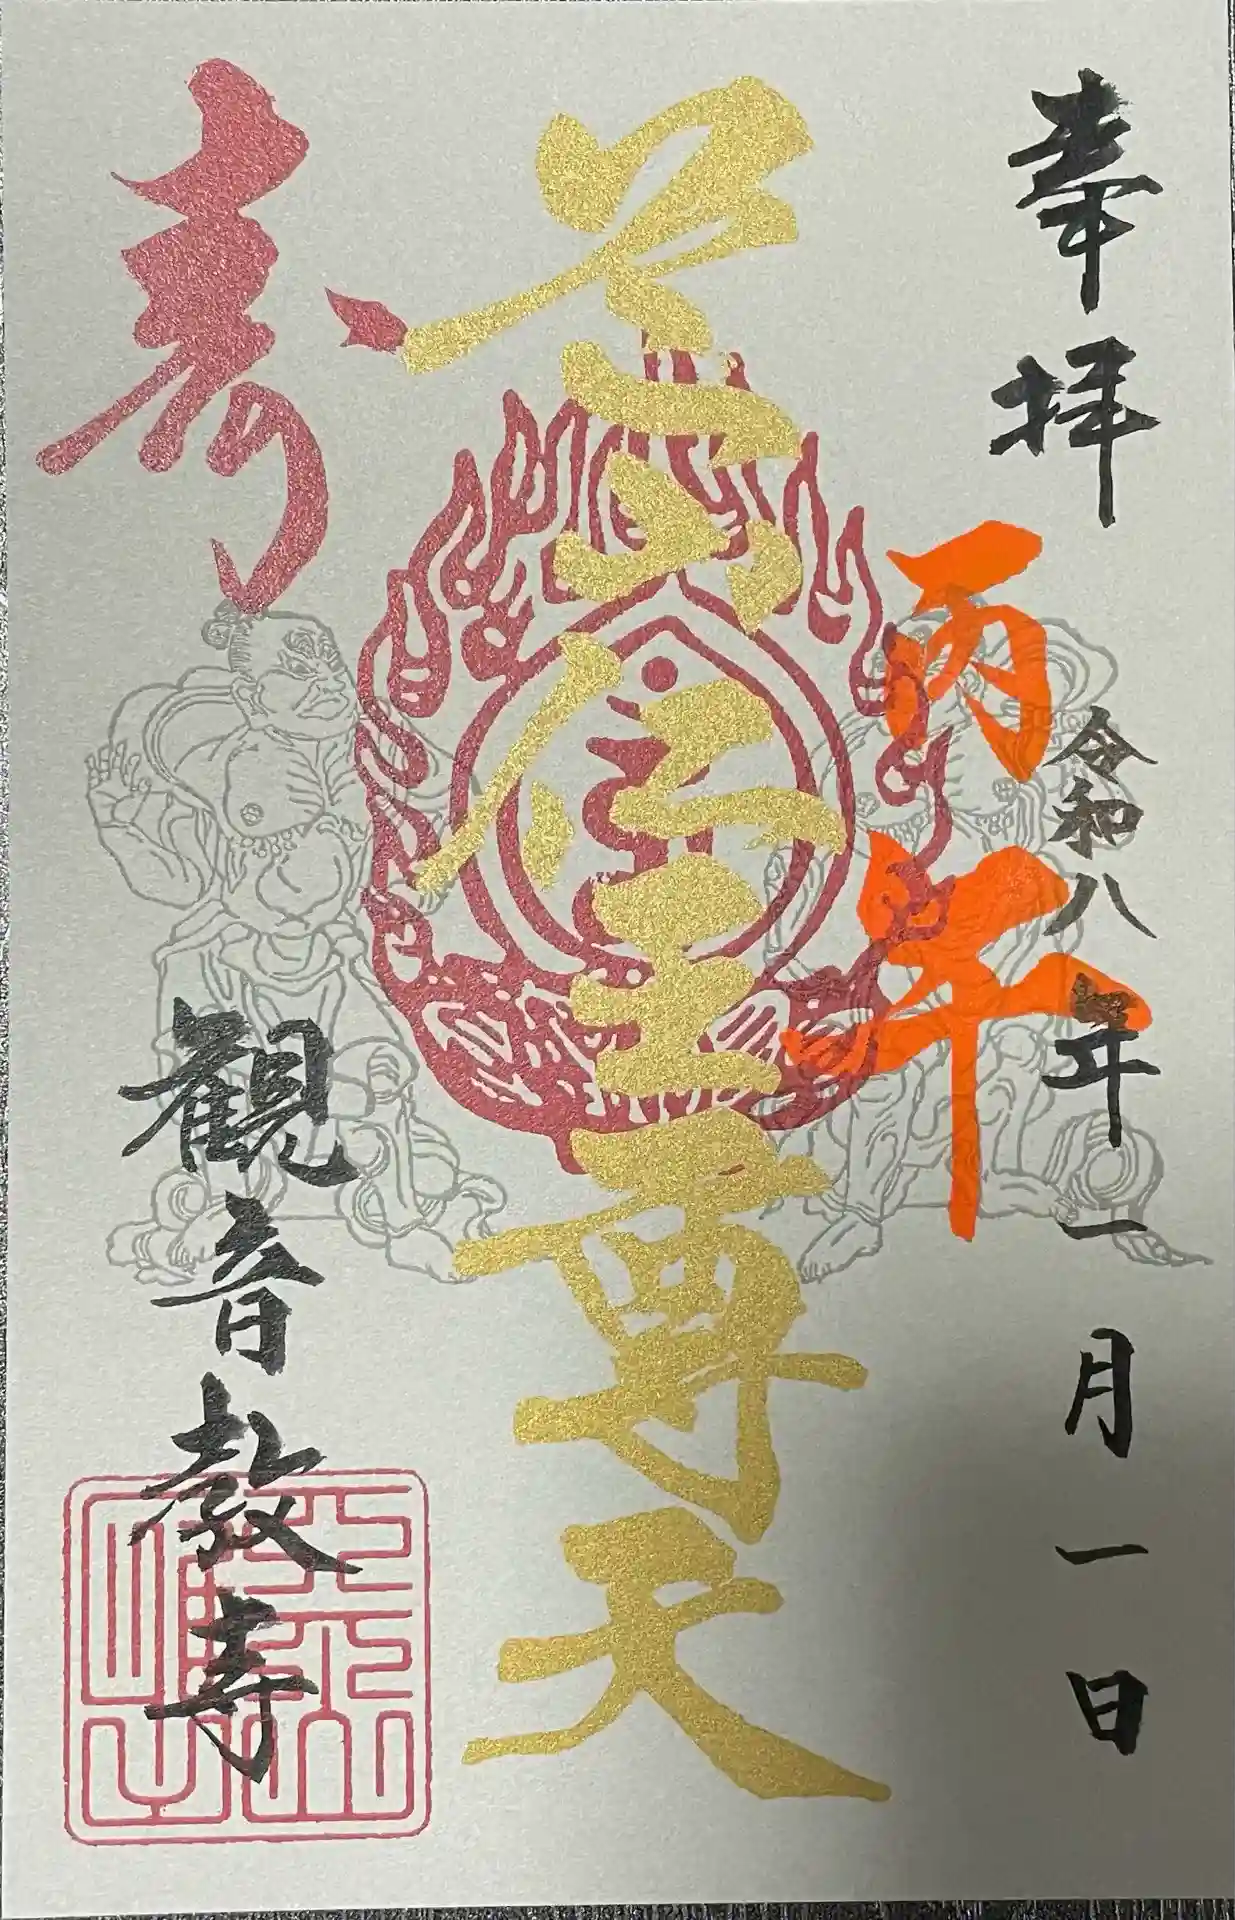 奉拝
丙午
令和八年一月一日
仁王尊天
寿
観音教寺